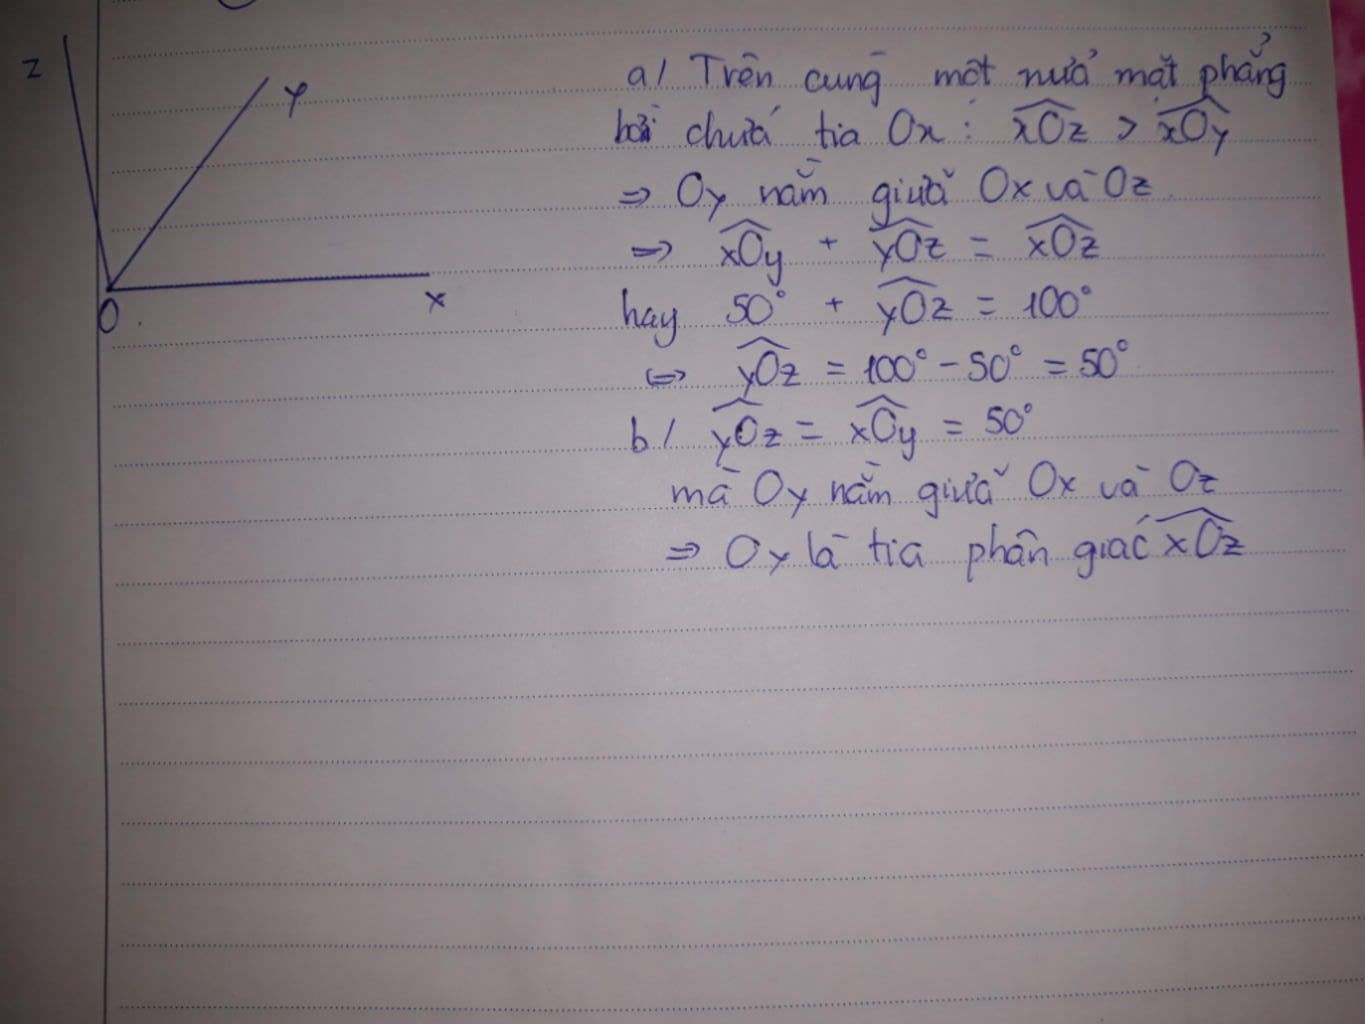 z
y
O
x
a/ Trên cùng một nửa mặt phẳng
bờ chứa tia Ox : xOz > xOy
=> Oy nằm giữa Ox và Oz
=> xOy + yOz = xOz
hay 50° + yOz = 100°
<=> yOz = 100° - 50° = 50°
b/ yOz = xOy = 50°
mà Oy nằm giữa Ox và Oz
=> Oy là tia phân giác xOz